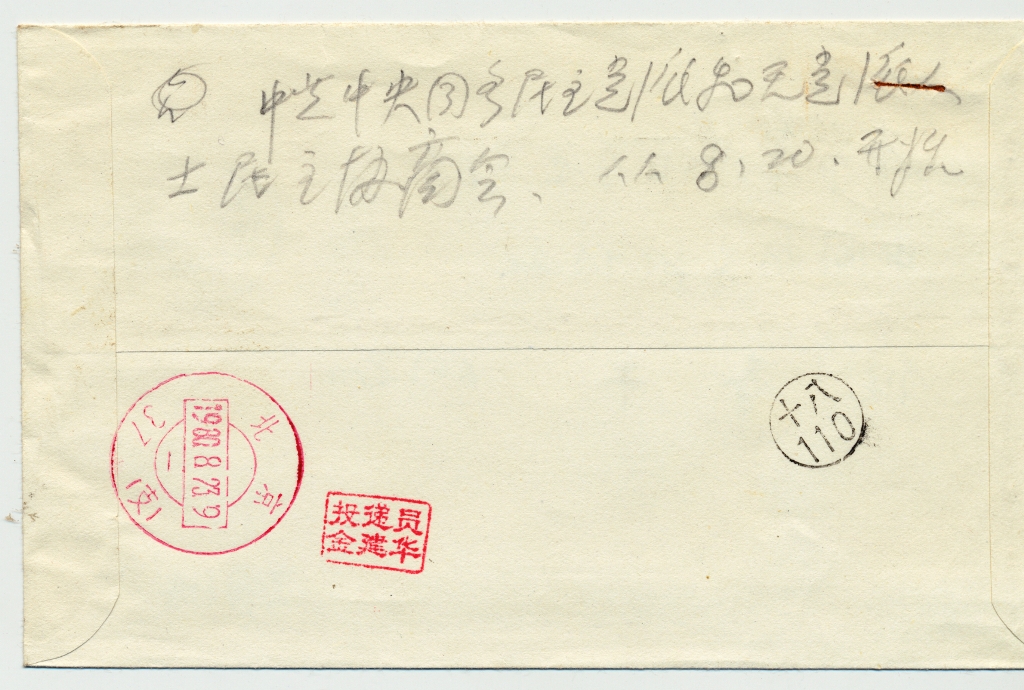 中共中央同各民主党派和无党派人
士民主协商会、从8.20.开始
北京
37
1980.8.23.9
(支)
十八
110
投递员
金建华